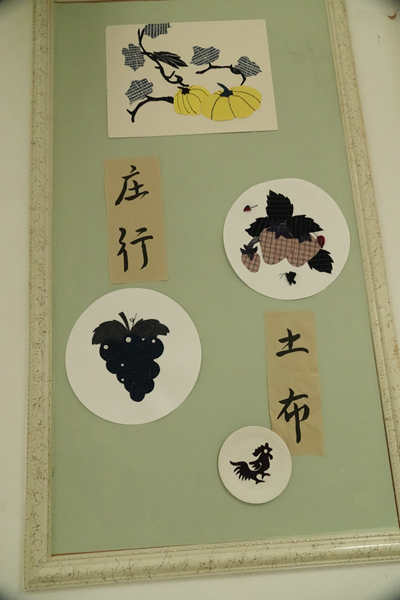 庄行
土布